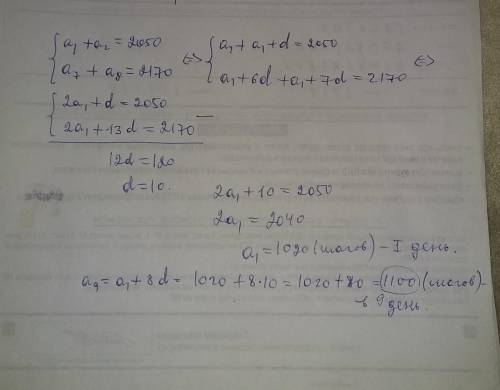 { a₁ + a₂ = 2050 <=> { a₁ + a₁ + d = 2050 <=>
{ a₇ + a₈ = 2170 { a₁ + 6d + a₁ + 7d = 2170
{ 2a₁ + d = 2050
{ 2a₁ + 13d = 2170 —
12d = 120
d = 10.
2a₁ + 10 = 2050
2a₁ = 2040
a₁ = 1020 (шагов) – I день.
a₉ = a₁ + 8d = 1020 + 8·10 = 1020 + 80 = 1100 (шагов) –
в 9 день.